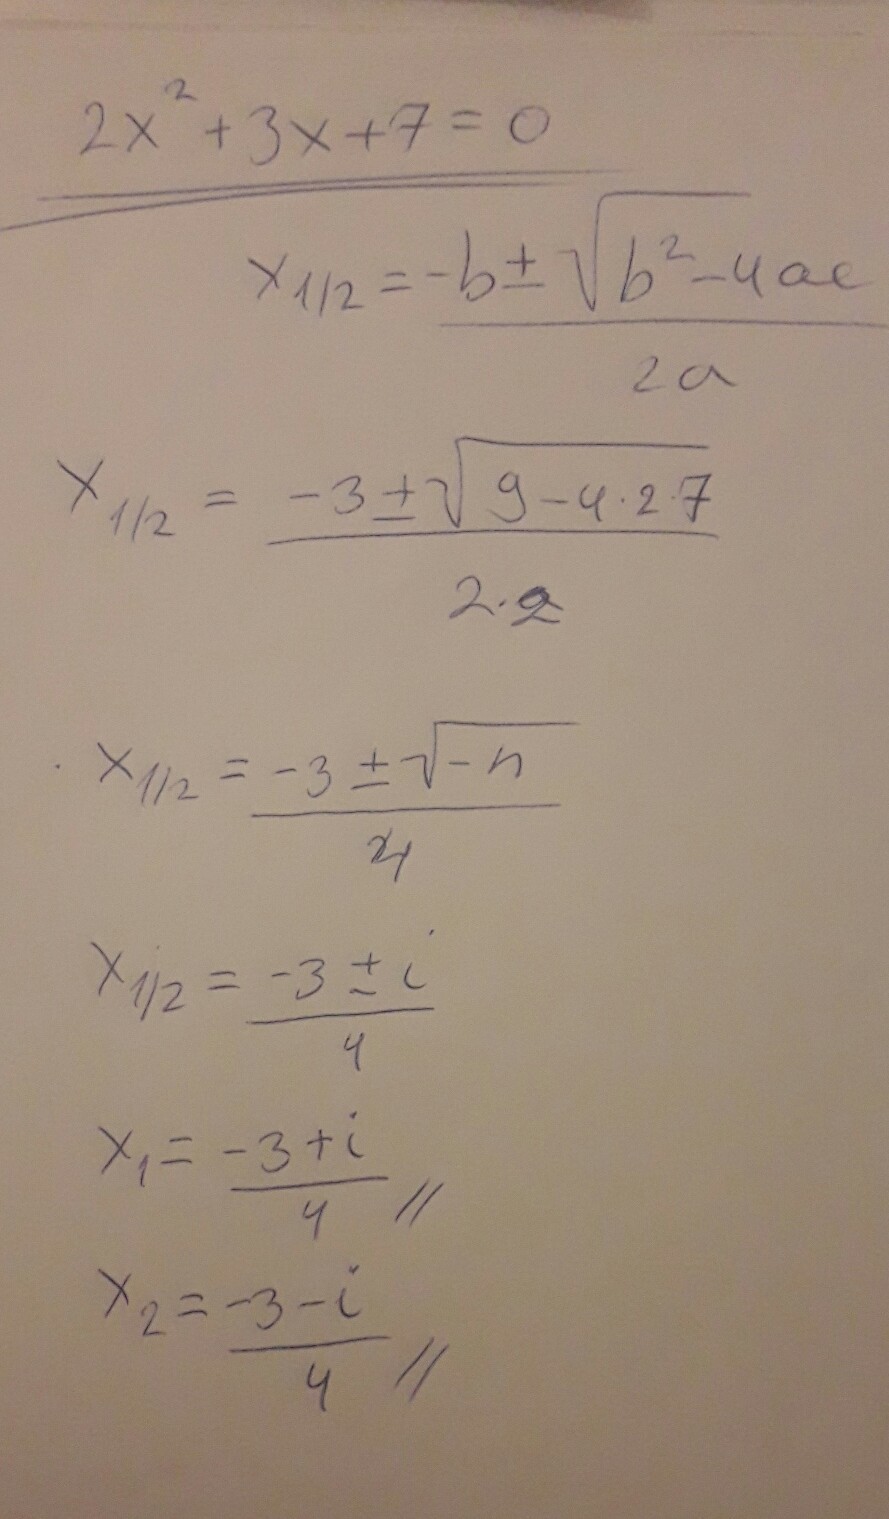 2x² + 3x + 7 = 0
x₁/₂ = (-b ± √(b² - 4ac)) / 2a
x₁/₂ = (-3 ± √(9 - 4·2·7)) / 2·2
x₁/₂ = (-3 ± √(-n)) / 4
x₁/₂ = (-3 ± i) / 4
x₁ = (-3 + i) / 4 //
x₂ = (-3 - i) / 4 //